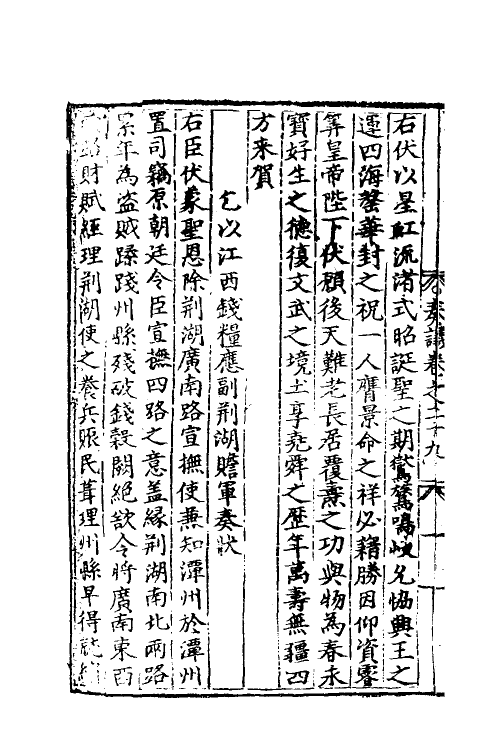 右伏以星虹流渚式昭誕聖之期鸑鷟鳴岐允協興王之
運四海罄華封之祝一人膺景命之祥必藉勝因仰資睿
筭皇帝陛下伏願後天難老長居覆燾之功與物為春永
寶好生之德復文武之境土享堯舜之歷年萬壽無疆四
方来賀
乞以江西錢糧應副荆湖贍軍奏狀
右臣伏蒙聖恩除荆湖廣南路宣撫使兼知潭州於潭州
置司竊原朝廷令臣宣撫四路之意盖緣荆湖南北兩路
累年為盗賊蹂踐州縣殘破錢穀闕絕欲令將廣南東西
財賦經理荆湖使之養兵賑民葺理州縣早得就緒
奏議卷之二十九